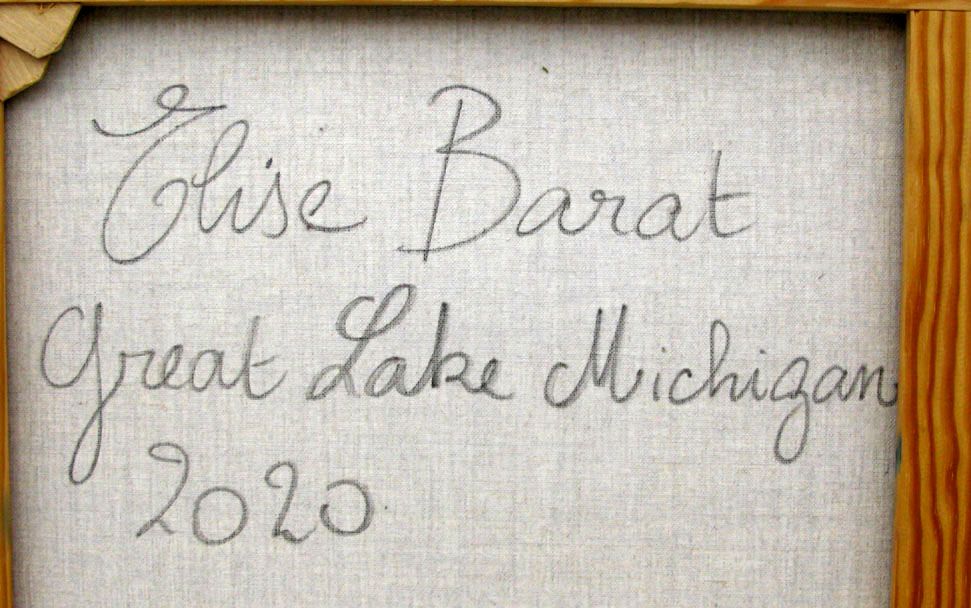 Elise Barat
Great Lake Michigan
2020